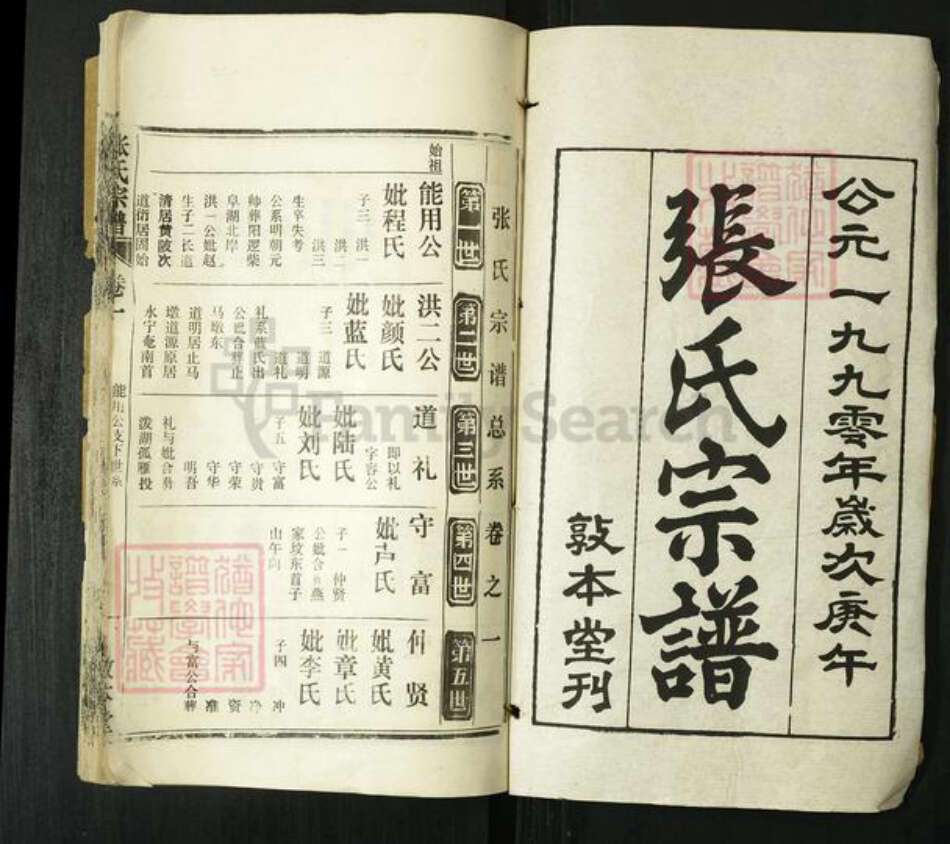 公元一九九零年歲次庚午
張氏宗譜
敦本堂刊
张氏宗谱总系卷之一
第一世
第二世
第三世
第四世
第五世
始祖
能用公
妣程氏
子三 洪一
洪二
洪三
生卒失考
公系明朝元
帅葬阳逻柴
阜湖北岸
洪一公妣赵
生子二长道
清居黄陂次
道衍居固始
洪二公
妣颜氏
妣蓝氏
子三 道源
道明
道礼
礼系蓝氏出
公妣合葬止
马墩东
道明居止马
墩道源原居
永宁奄南首
道礼
即以礼
字容公
妣陆氏
妣刘氏
子五 守富
守贵
守荣
守华
明吾
礼与妣合葬
泼湖孤雁投
守富
妣卢氏
子一 仲贤
公妣合
家坟东首子
山午向
仲贤
妣黄氏
妣章氏
妣李氏
子四 冲
净
资
准
与富公合葬
张氏宗谱
卷一
能用公支下世系
敦本堂
FamilySearch